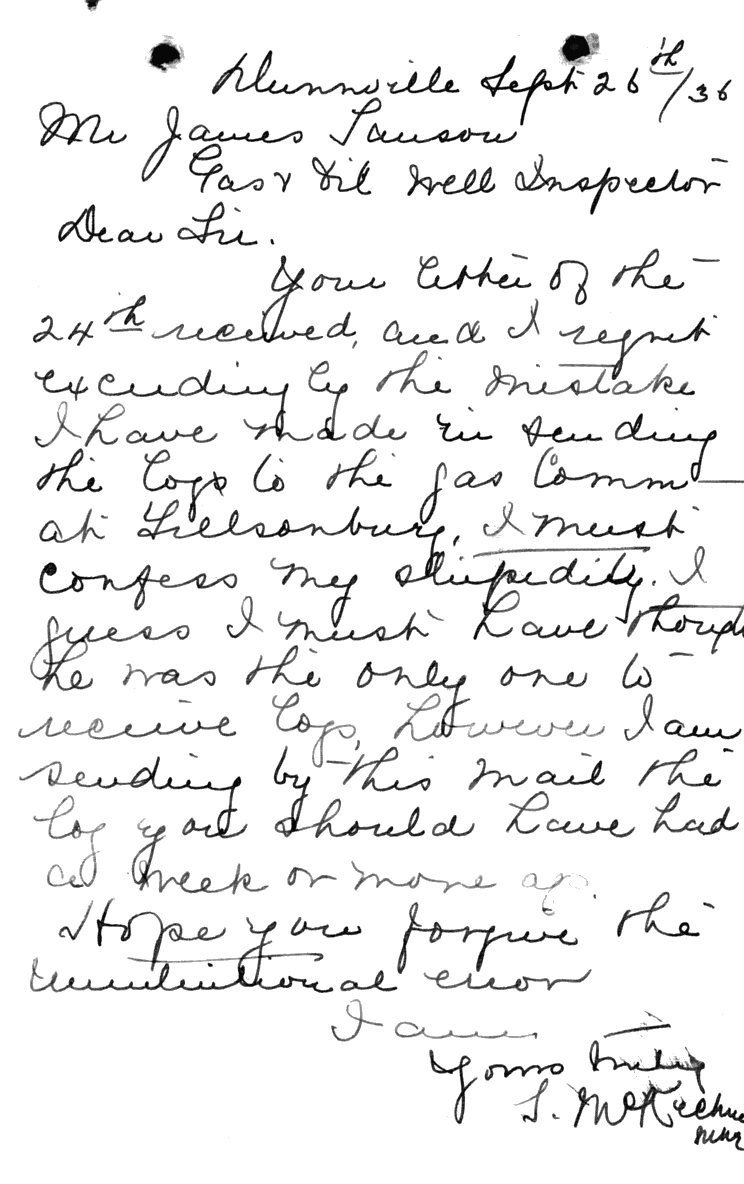 Dunnville Sept 26th/36
Mr James Sanson
Gas & Oil Well Inspector
Dear Sir.
Your letter of the
24th received, and I regret
exceedingly the mistake
I have made in sending
the logs to the gas Comm
at Tillsonburg, I must
confess my stupidity. I
guess I must have though
he was the only one to
receive logs, however I am
sending by this mail the
log you should have had
a week or more ago.
Hope you forgive the
unintentional error
I am
Yours truly